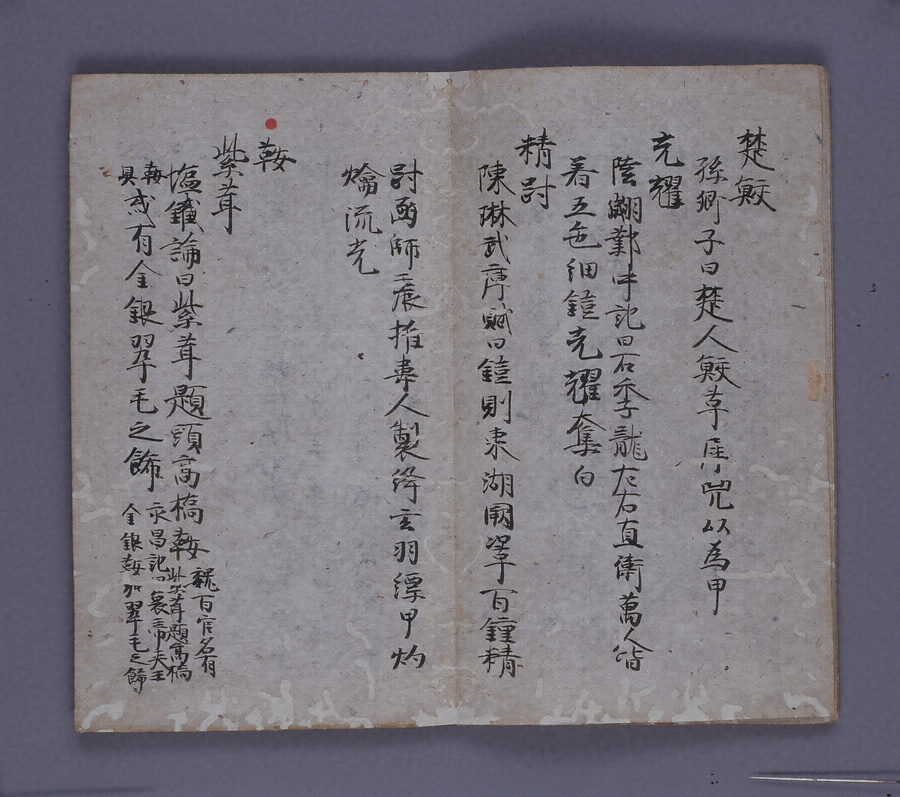 楚鮫
孫卿子曰楚人鮫草犀兕以為甲
光耀
陸翽鄴中記曰石季龍左右直衛萬人皆
着五色細鎧光耀奪白
精討
陳琳武庫賦曰鎧則東湖闕鞏百鍾精
討函師 人製絳玄羽縹甲灼
爚流光
鞍
紫茸
塩鐵論曰紫茸題頭高橋鞍 魏百官名有
紫茸題高橋
鞍具或有金銀翠毛之飾 永昌記曰哀帝夫王
金銀鞍加翠毛之飾